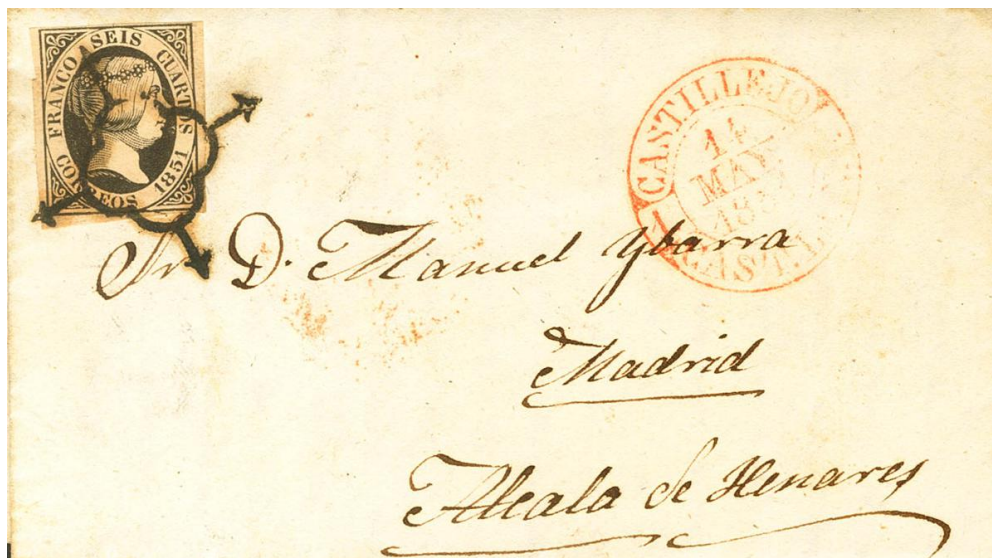 FRANCO SEIS CUARTOS
CORREOS 1851
CASTILLEJO
14
MAY
CAST.
Sr. D. Manuel Ybarra
Madrid
Alcala de Henares